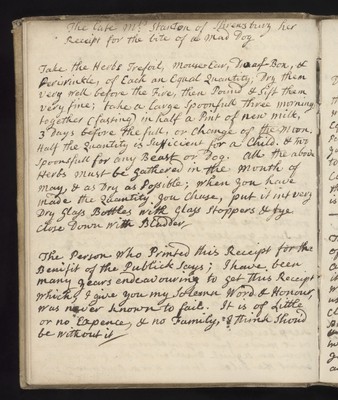 The late Mrs Stanton of Shrewsbury her
Receipt for the bite of a Mad Dog
Take the Herbs Trefoil, Mouse Ear, Dwarf-Box, &
Periwinkle, of Each an Equal Quantity, Dry them
very well before the Fire, then Pound & Sift them
very fine; take a large Spoonfull three mornings
together (fasting) in half a Pint of new milk,
3 Days before the full, or Change of the Moon.
Half the Quantity is Sufficient for a Child. & two
Spoonsfull for any Beast or Dog. All the above
Herbs must be gathered in the Month of
May, & as Dry as Possible; when you have
made the Quantity you Chuse, put it into very
Dry Glass Bottles with Glass Stoppers & tye
Close Down with Bladder
The Person who Printed this Receipt for the
Benifit of the Publick Says; I have been
many years endeavouring to get this Receipt
which I give you my Solemn Word & Honour,
was never known to fail. It is of Little
or no Expence, & no Family, I think Should
be without it